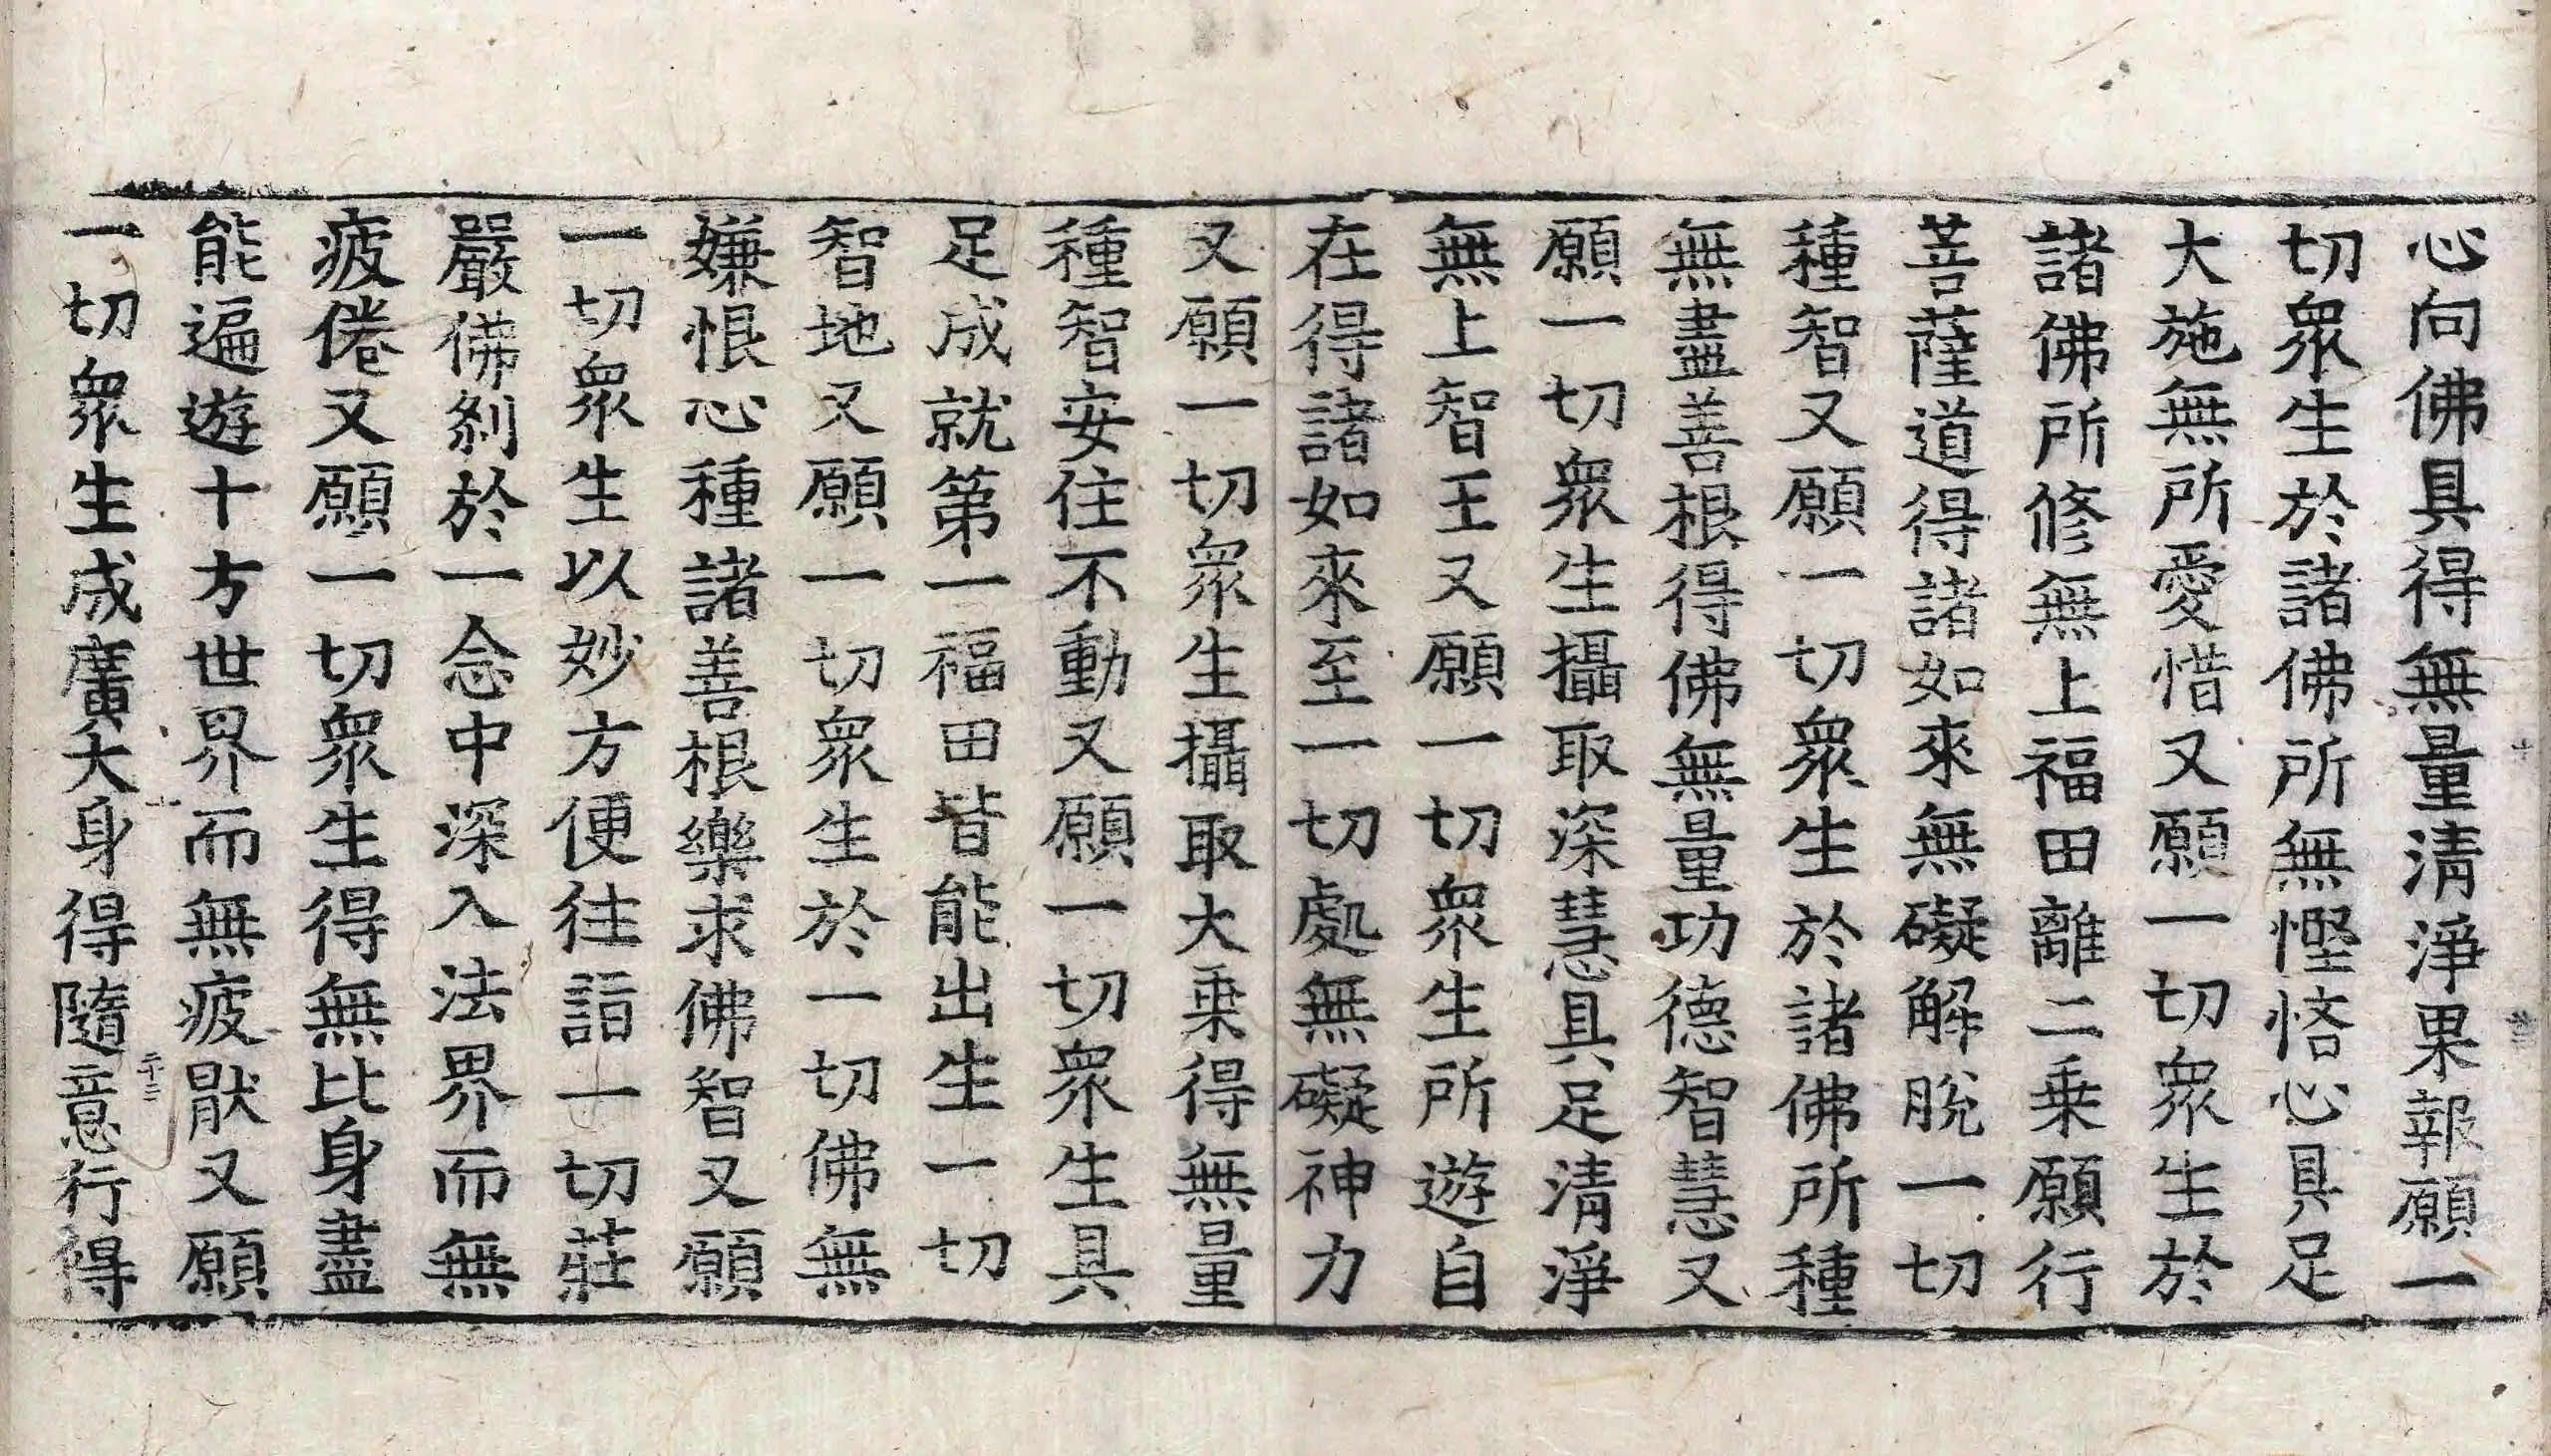 心向佛具得無量清淨果報願一
切衆生於諸佛所無慳悋心具足
大施無所愛惜又願一切衆生於
諸佛所修無上福田離二乗願行
菩薩道得諸如來無礙解脫一切
種智又願一切衆生於諸佛所種
無盡善根得佛無量功德智慧又
願一切衆生攝取深慧具足清淨
無上智王又願一切衆生所遊自
在得諸如來至一切處無礙神力
又願一切衆生攝取大乗得無量
種智安住不動又願一切衆生具
足成就第一福田皆能出生一切
智地又願一切衆生於一切佛無
嫌恨心種諸善根樂求佛智又願
一切衆生以妙方便往詣一切莊
嚴佛刹於一念中深入法界而無
疲倦又願一切衆生得無比身盡
能遍遊十方世界而無疲猒又願
一切衆生成廣大身得隨意行得
二十二